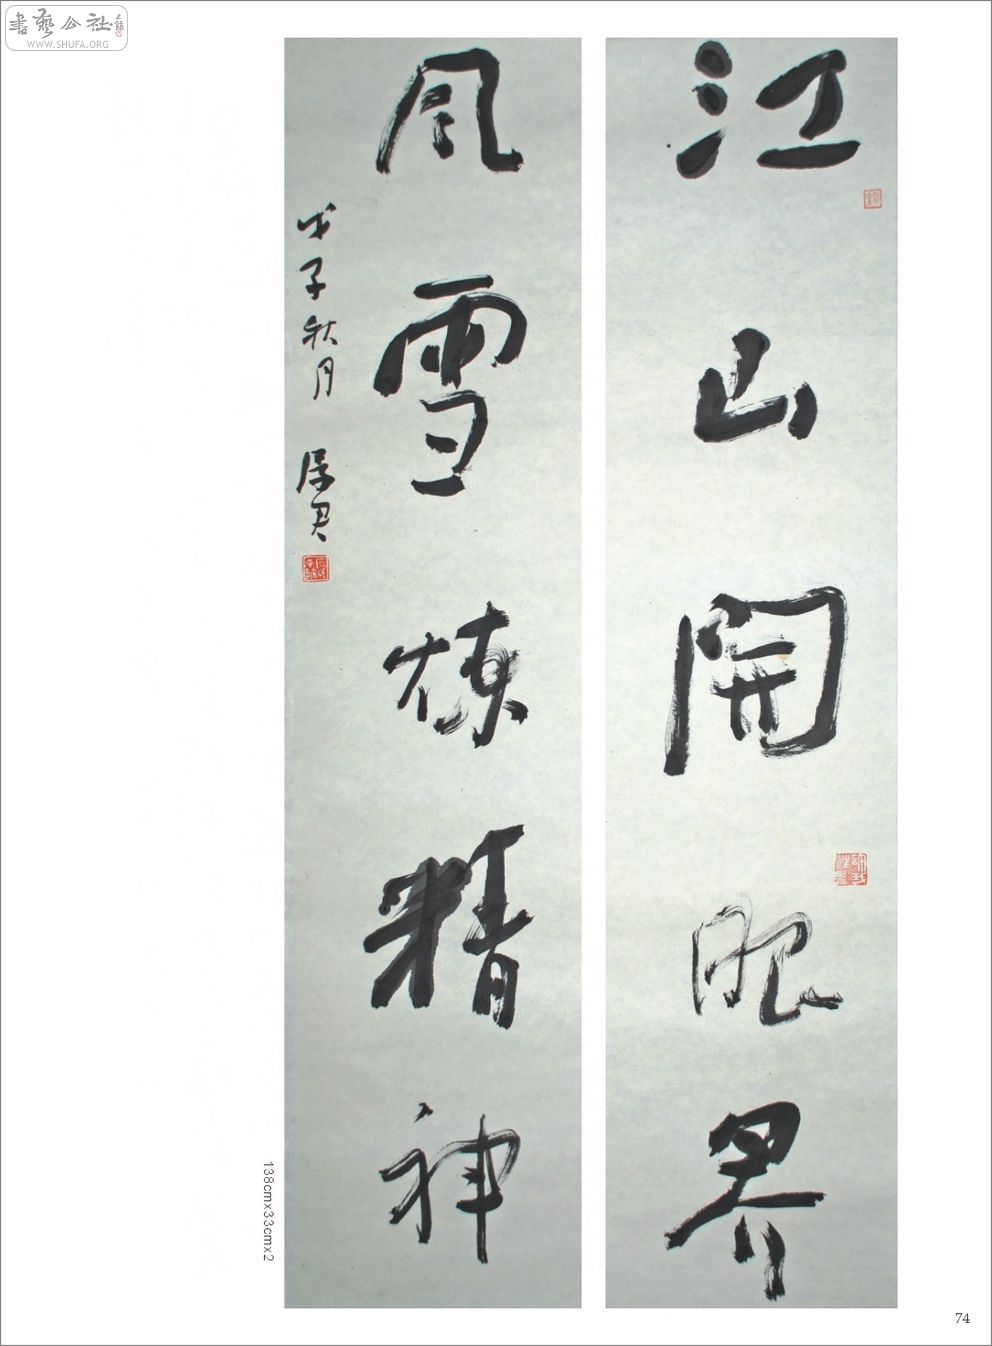 书艺公社
WWW.SHUFA.ORG
江山開眼界
风雪煉精神
戊子秋月
138cmx33cmx2
74